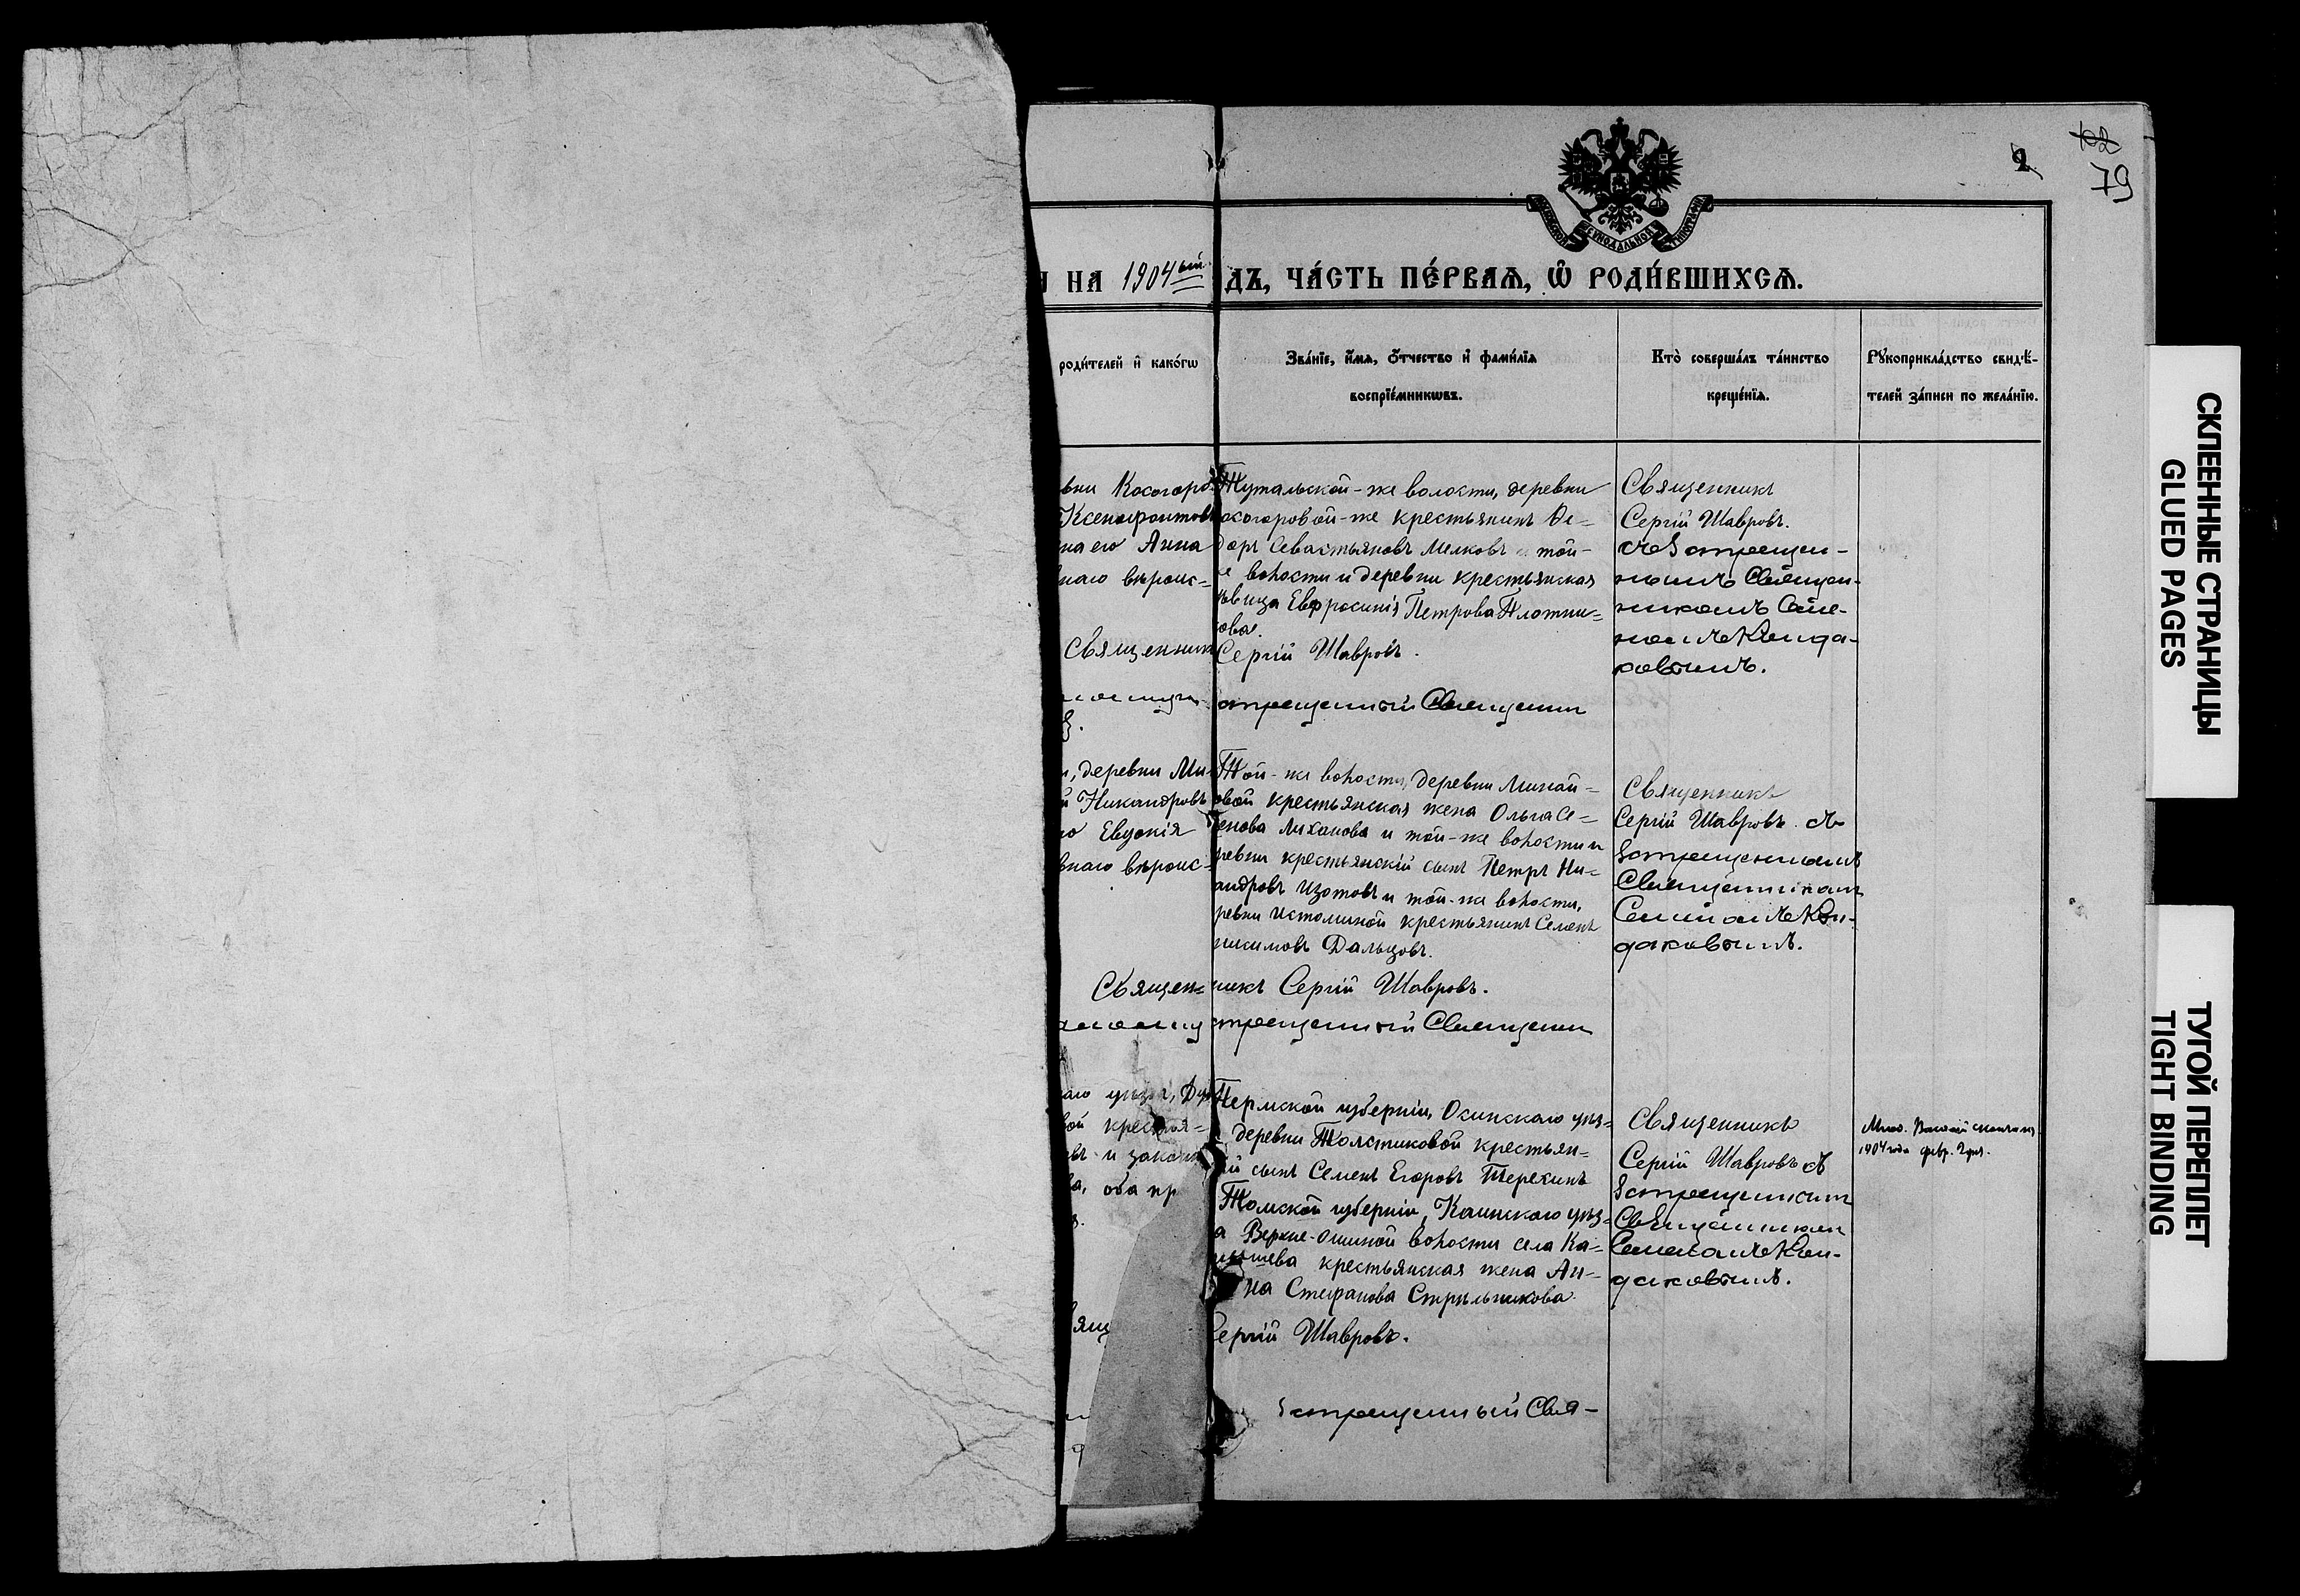 102
2
79
НА 1904ый
ДЪ, ЧА́СТЬ ПЕ́РВАѦ, Ѡ҆ РОДИ́ВШИХСѦ.
роди́телей и҆ како́гѡ
Зва́нїе, и҆́мѧ, ѻ҆́тчество и҆ фами́лїѧ
воспрїе́мникѡвъ.
Кто̀ соверша́лъ та́инство
креще́нїѧ.
Рꙋкоприкла́дство свидѣ́-
телей за́писи по жела́нїю.
вни Косогоро
Ксенофонтовъ
на его Анна
наго вѣроис=
Священник
Тутальской-же волости, деревни
осогоровой-же крестьянинъ Ѳе=
доръ Севастьяновъ Мелковъ и той-
е волости и деревни крестьянская
ѣвица Евфросинія Петрова Плотни=
кова.
Сергій Шавровъ.
апрещенный Священни
Священникъ
Сергій Шавровъ.
съ Запрещен-
нымъ Священ-
никомъ Симе-
ономъ Конда-
ковымъ.
, деревни Ми
й Никандровъ
го Евдокія
внаго вѣроис=
Священ=
Той-же волости, деревни Минай=
овой крестьянская жена Ольга Се=
енова Лиханова и той-же волости и
ревни крестьянскій сынъ Петръ Ни=
андровъ Изотовъ и той-же волости,
ревни Истоминой крестьянинъ Семенъ
нисимовъ Дальцовъ.
никъ Сергій Шавровъ.
апрещенный Священни
Священникъ
Сергій Шавровъ съ
Запрещеннымъ
Священникомъ
Симеономъ Кон-
даковымъ.
аго уѣзда,
вой крестья=
въ и законн
а, оба пр
вящ
Пермской губерніи, Осинскаго уѣз=
деревни Толстиковой крестьян=
ій сынъ Семенъ Егоровъ Терехинъ
Томской губерніи, Каинскаго уѣз=
а Верхне-Ошиной волости села Ка=
мышева крестьянская жена Ан=
на Стефанова Стрѣльникова.
Сергій Шавровъ.
Запрещенный Свя-
Священникъ
Сергій Шавровъ съ
Запрещеннымъ
Священником
Симеономъ Кон-
даковымъ.
1904 года февр.
СКЛЕЕННЫЕ СТРАНИЦЫ
GLUED PAGES
ТУГОЙ ПЕРЕПЛЕТ
TIGHT BINDING